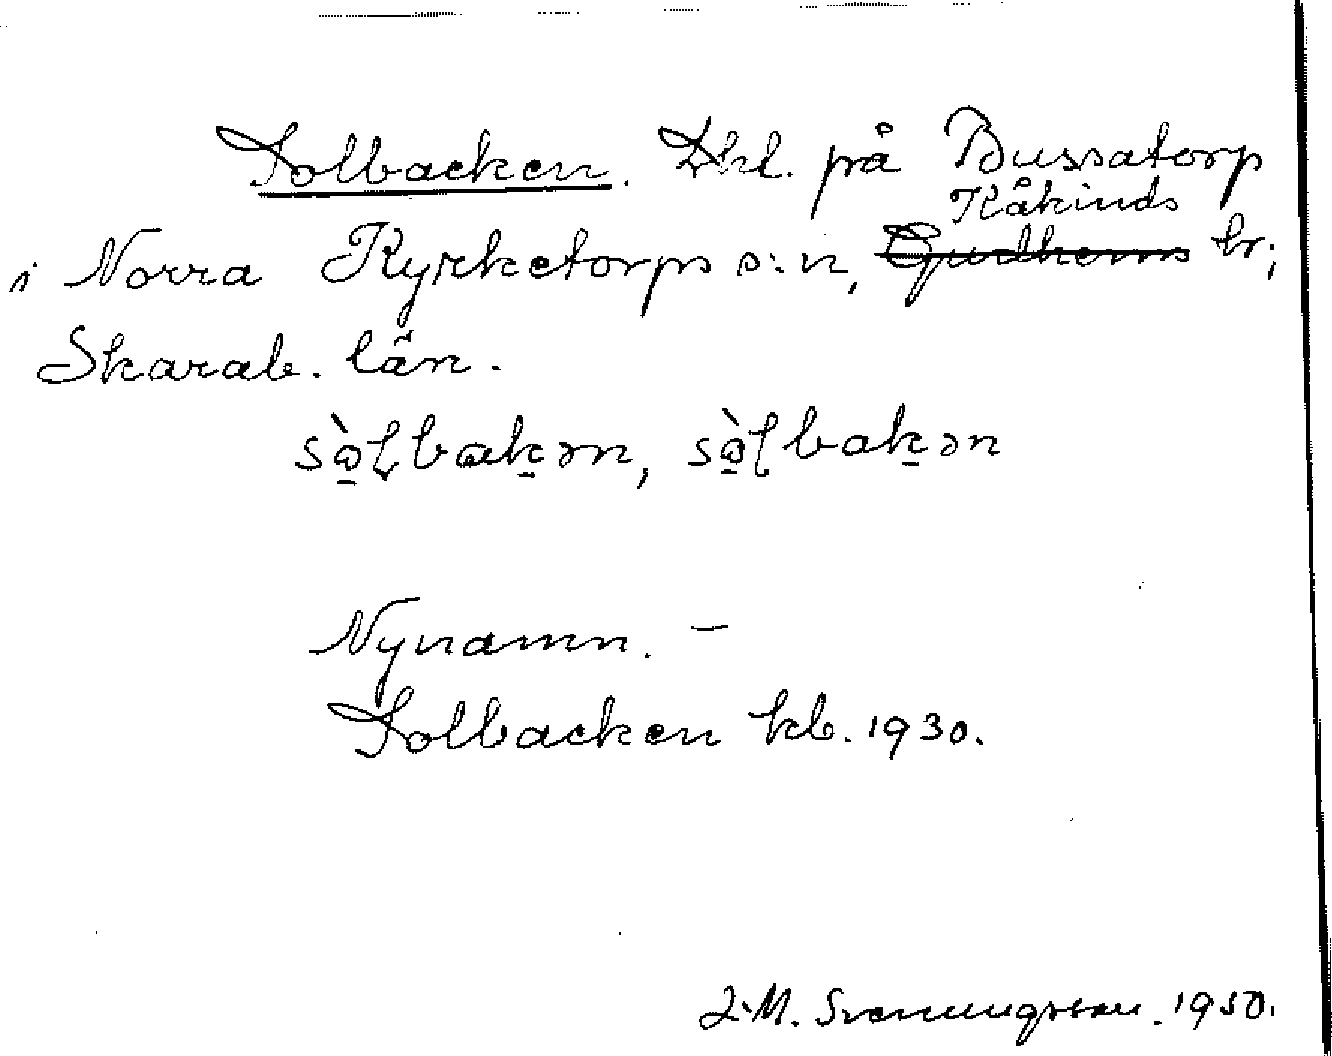 Solbacken. Dhl. på Bussatorp
Kåkinds
i Norra Kyrketorps s:n, Gudhems hr;
Skarab. län.
sòլbakən, sòլbakən
Nynamn. –
Solbacken kb. 1930.
Svenungsson. 1950.